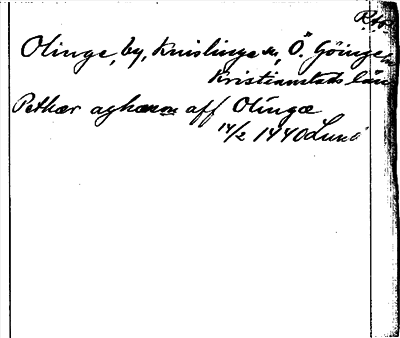 Olinge, by, Knislinge sn, Ö. Göinge
Kristianstads län
Pethær aghæson aff Olingæ
14/2 1440 Lund